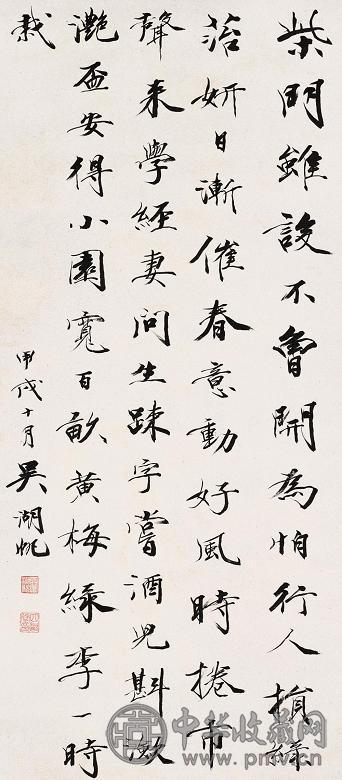 柴門雖設不曾開為怕行人損綠
苔妍日漸催春意動好風時捲市
聲来學經妻問生踈字嘗酒兒斟瀲
灩盃安得小園寬百畝黃梅綠李一時
栽
甲戌十月吳湖帆
中华收藏网
www.pmv.cn